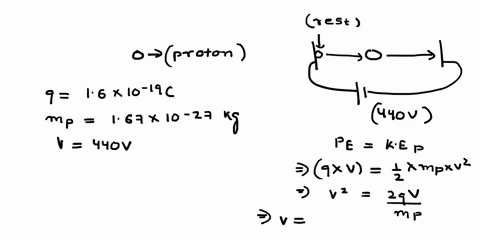 (rest)
o→(proton)
q = 1.6 × 10-19C
mp = 1.67 × 10-27 kg
V = 440V
(440V)
PE = K.Ep
⇒ (q×V) = 1/2 × mp × v²
⇒ v² = 2qV/mp
⇒ v =